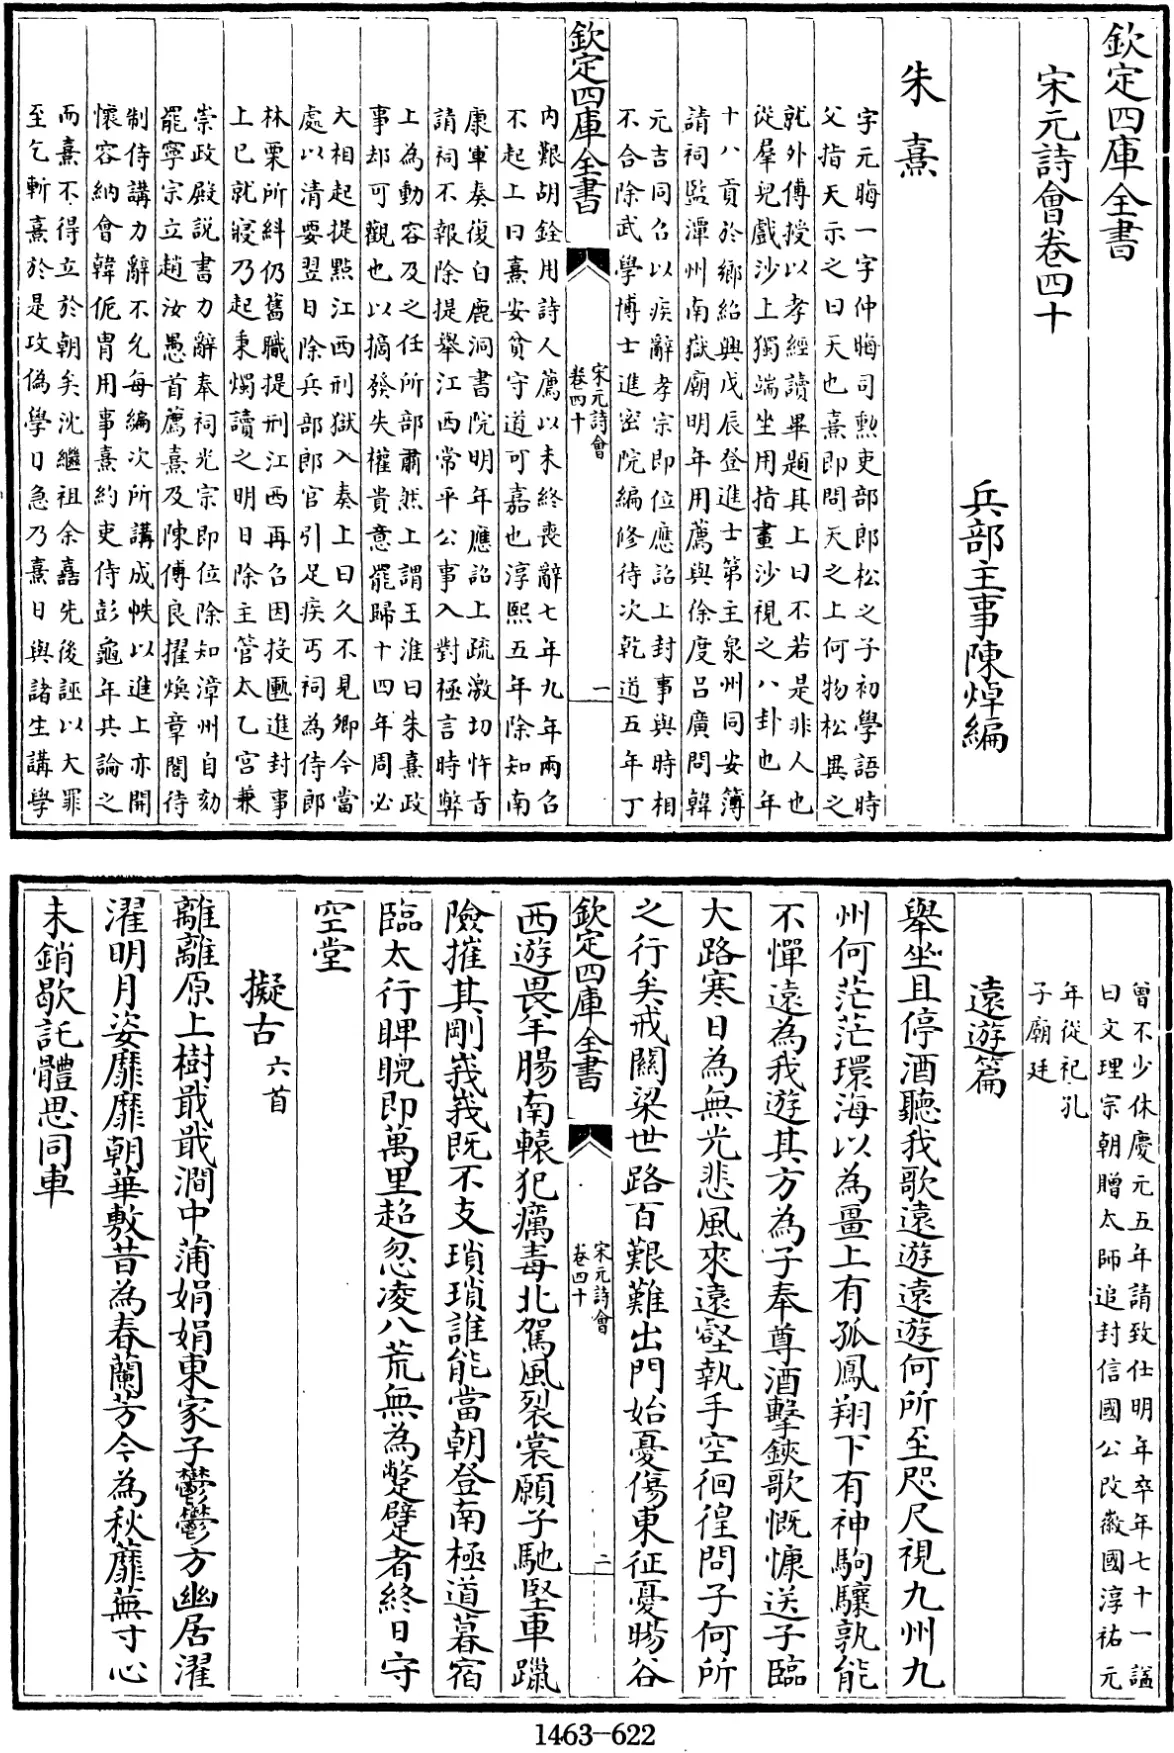 欽定四庫全書
宋元詩會卷四十
兵部主事陳焯編
朱熹
字元晦一字仲晦司勲吏部郎松之子初學語時
父指天示之曰天也熹即問天之上何物松異之
就外傅授以孝經讀畢題其上曰不若是非人也
從羣兒戲沙上獨端坐用指畫沙視之八卦也年
十八貢於鄉紹興戊辰登進士第主泉州同安簿
請祠監潭州南獄廟明年用薦與徐度吕廣問韓
元吉同召以疾辭孝宗即位應詔上封事與時相
不合除武學博士進密院編修待次乾道五年丁
欽定四庫全書
宋元詩會
卷四十
一
内艱胡銓用詩人薦以未終喪辭七年九年兩召
不起上曰熹安貧守道可嘉也淳熙五年除知南
康軍奏復白鹿洞書院明年應詔上疏激切忤旨
請祠不報除提舉江西常平公事入對極言時弊
上為動容及之任所部肅然上謂王淮曰朱熹政
事却可觀也以摘發失權貴意罷歸十四年周必
大相起提點江西刑獄入奏上曰久不見卿今當
處以清要翌日除兵部郎官引足疾丐祠為侍郎
林栗所糾仍舊職提刑江西再召因投匭進封事
上已就寢乃起秉燭讀之明日除主管太乙宫兼
崇政殿説書力辭奉祠光宗即位除知漳州自劾
罷寧宗立趙汝愚首薦熹及陳傅良擢煥章閣待
制侍講力辭不允每編次所講成帙以進上亦開
懷容納會韓侂胄用事熹約吏侍彭龜年共論之
而熹不得立於朝矣沈繼祖余嚞先後誣以大罪
至乞斬熹於是攻偽學日急乃熹日與諸生講學
曾不少休慶元五年請致仕明年卒年七十一諡
曰文理宗朝贈太師追封信國公改徽國淳祐元
年從祀孔
子廟廷
遠遊篇
舉坐且停酒聽我歌遠遊遠遊何所至咫尺視九州九
州何茫茫環海以為畺上有孤鳳翔下有神駒驤孰能
不憚遠為我遊其方為子奉尊酒擊鋏歌慨慷送子臨
大路寒日為無光悲風來遠壑執手空徊徨問子何所
之行矣戒關梁世路百艱難出門始憂傷東征憂暘谷
欽定四庫全書
宋元詩會
卷四十
二
西遊畏羊腸南轅犯癘毒北駕風裂裳願子馳堅車躐
險摧其剛峩峩既不支瑣瑣誰能當朝登南極道暮宿
臨太行睥睨即萬里超忽凌八荒無為蹩躠者終日守
空堂
擬古六首
離離原上樹戢戢澗中蒲娟娟東家子鬱鬱方幽居濯
濯明月姿靡靡朝華敷昔為春蘭芳今為秋蘼蕪寸心
未銷歇託體思同車
1463-622